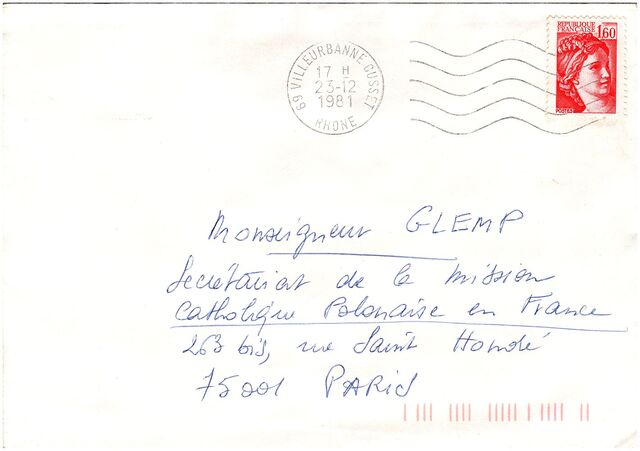 RÉPUBLIQUE
FRANÇAISE 1,60
POSTES
69 VILLEURBANNE CUSSET
17 H
23-12
1981
RHONE
Monseigneur GLEMP
Secrétariat de la Mission
Catholique Polonaise en France
263 bis, rue Saint Honoré
75001 PARIS